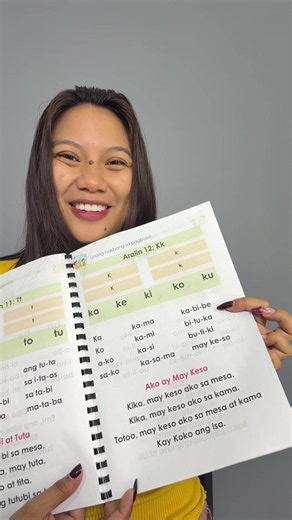 n 11: Tt
T
t
to tu
ang tu-ta
sa i-ta-as
sa ta-bi
ma-ta-ba
i at Tuta
-bi sa mesa.
a, may tuta.
o at tita.
ng tutubi sa
unang hakbang sa pagbasa
Aralin 12: Kk
K K
k k
ka ke ki ko ku
Ka ka-ma ka-bi-be
Ko ka-mi bi-tu-ka
a-ko ka-si bu-ti-ki
sa-ko ka-sa-ma may ke-so
Ako ay May Keso
Kiko, may keso ako sa mesa.
Kika, may keso ako sa kama.
Totoo, may keso ako sa mesa at kama
Kay Koko ang isa.